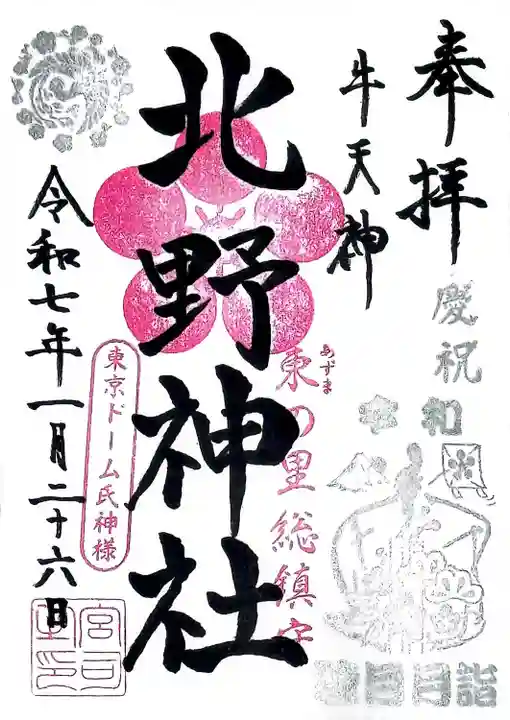 奉拝
慶祝
令和
牛天神
北野神社
あずま
東の里総鎮守
東京ドーム氏神様
令和七年一月二十六日
宮司之印